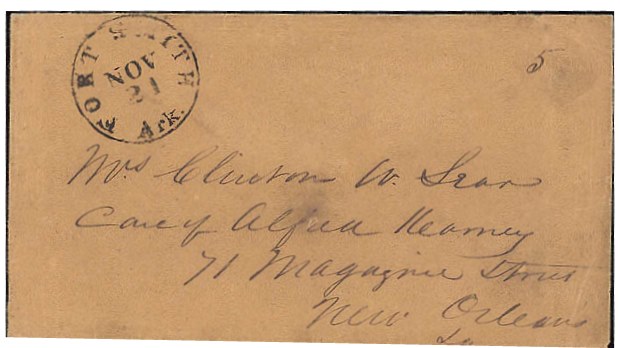 FORT SMITH
NOV
21
Ark.
5
Mrs Clinton W. Sears
Care of Alfred Kearney
71 Magazine Street
New Orleans
La